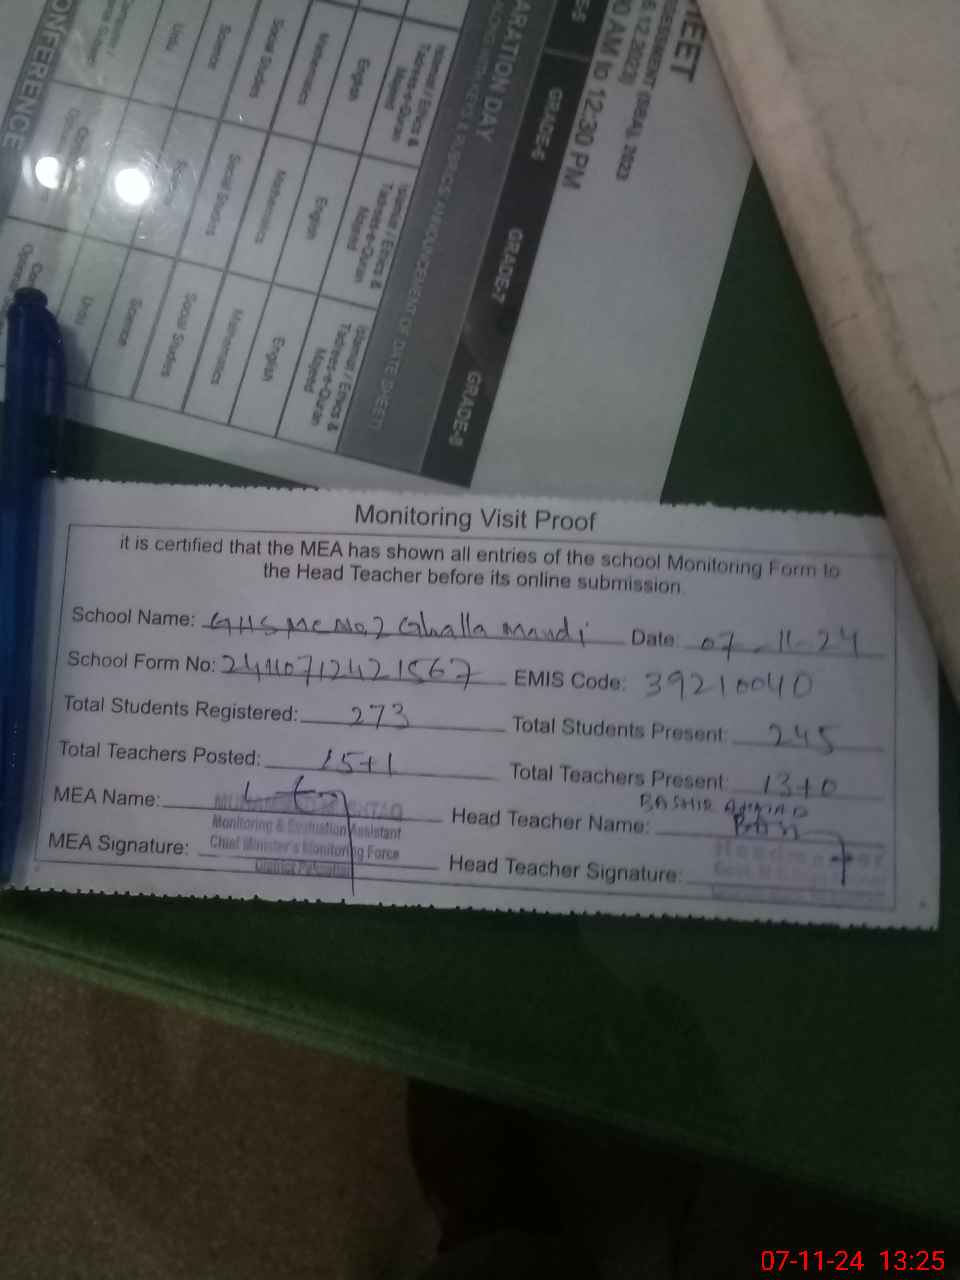 EET
ESSMENT (SBA), 2023
6.12.2023)
0 AM to 12:30 PM
GRADE-6
GRADE-7
GRADE-8
ARATION DAY
ANNOUNCEMENT OF DATE SHEET)
Islamiat / Ethics &
Tadrees-e-Quran
Majeed
Islamiat / Ethics &
Tadrees-e-Quran
Majeed
Islamiat / Ethics &
Tadrees-e-Quran
Majeed
English
English
English
Mathematics
Mathematics
Mathematics
Social Studies
Social Studies
Social Studies
Science
Science
Urdu
Urdu
ONFERENCE
Monitoring Visit Proof
it is certified that the MEA has shown all entries of the school Monitoring Form to
the Head Teacher before its online submission.
School Name: GHS MC No.2 Ghalla Mandi Date: 07-11-24
School Form No: 24110712421567 EMIS Code: 39210040
Total Students Registered: 273 Total Students Present: 245
Total Teachers Posted: 15+1 Total Teachers Present: 13+0
MEA Name: Head Teacher Name: BASHIR AHMAD
Monitoring & Evaluation Assistant
Chief Minister's Monitoring Force
MEA Signature: Head Teacher Signature:
07-11-24 13:25